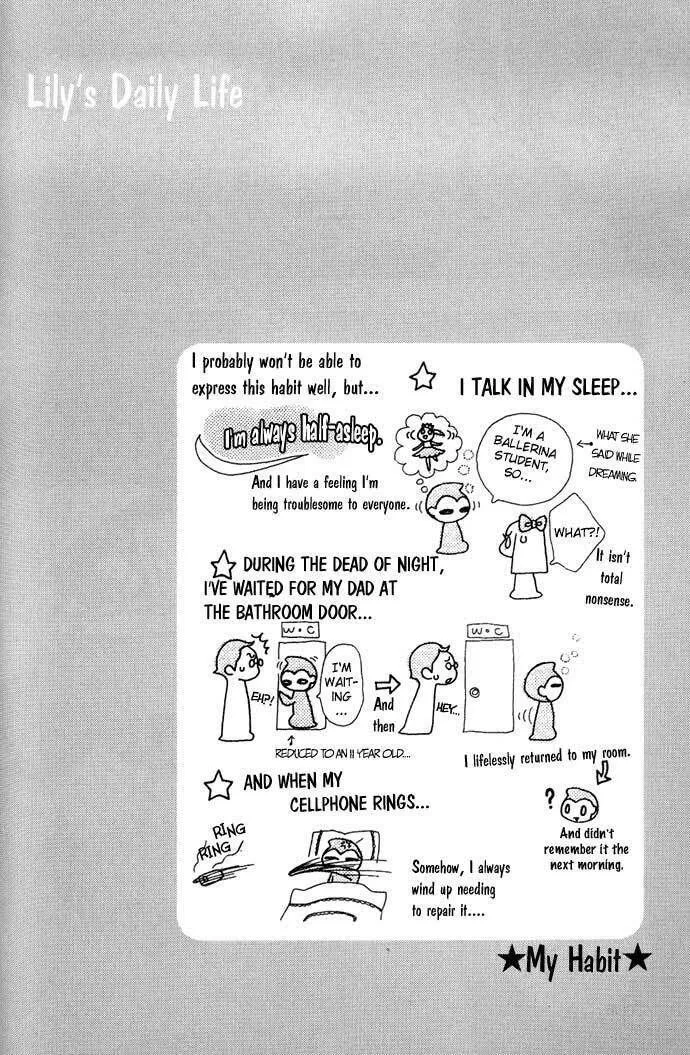 Lily's Daily Life
I probably won't be able to
express this habit well, but...
I'm always half-asleep.
And I have a feeling I'm
being troublesome to everyone.
☆ I TALK IN MY SLEEP...
I'M A
BALLERINA
STUDENT,
SO...
← WHAT SHE
SAID WHILE
DREAMING.
WHAT?!
It isn't
total
nonsense.
☆ DURING THE DEAD OF NIGHT,
I'VE WAITED FOR MY DAD AT
THE BATHROOM DOOR...
W•C
EHP!
I'M
WAIT-
ING
...
↑
REDUCED TO AN 11 YEAR OLD...
⇨
And
then
W•C
HEY...
I lifelessly returned to my room.
?
And didn't
remember it the
next morning.
☆ AND WHEN MY
CELLPHONE RINGS...
RING
RING
Somehow, I always
wind up needing
to repair it....
★My Habit★